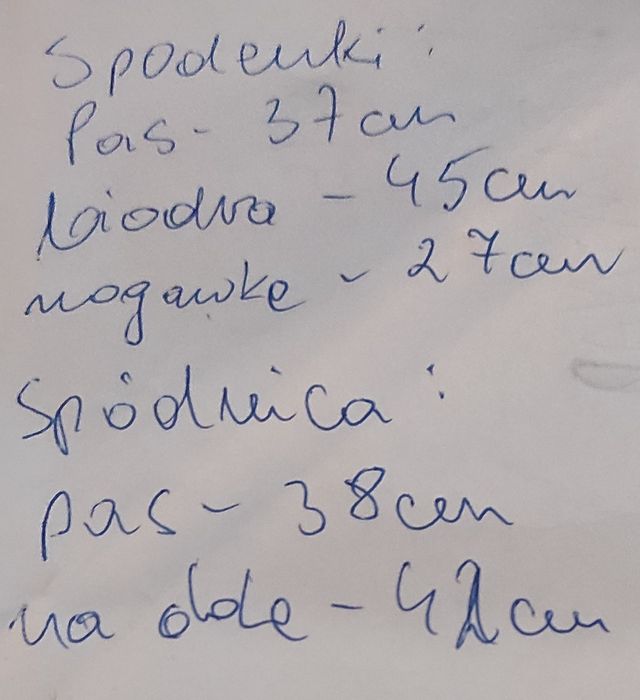 Spodenki:
Pas - 37cm
biodra - 45cm
nogawke - 27cm
Spódnica:
pas - 38cm
na dole - 42cm